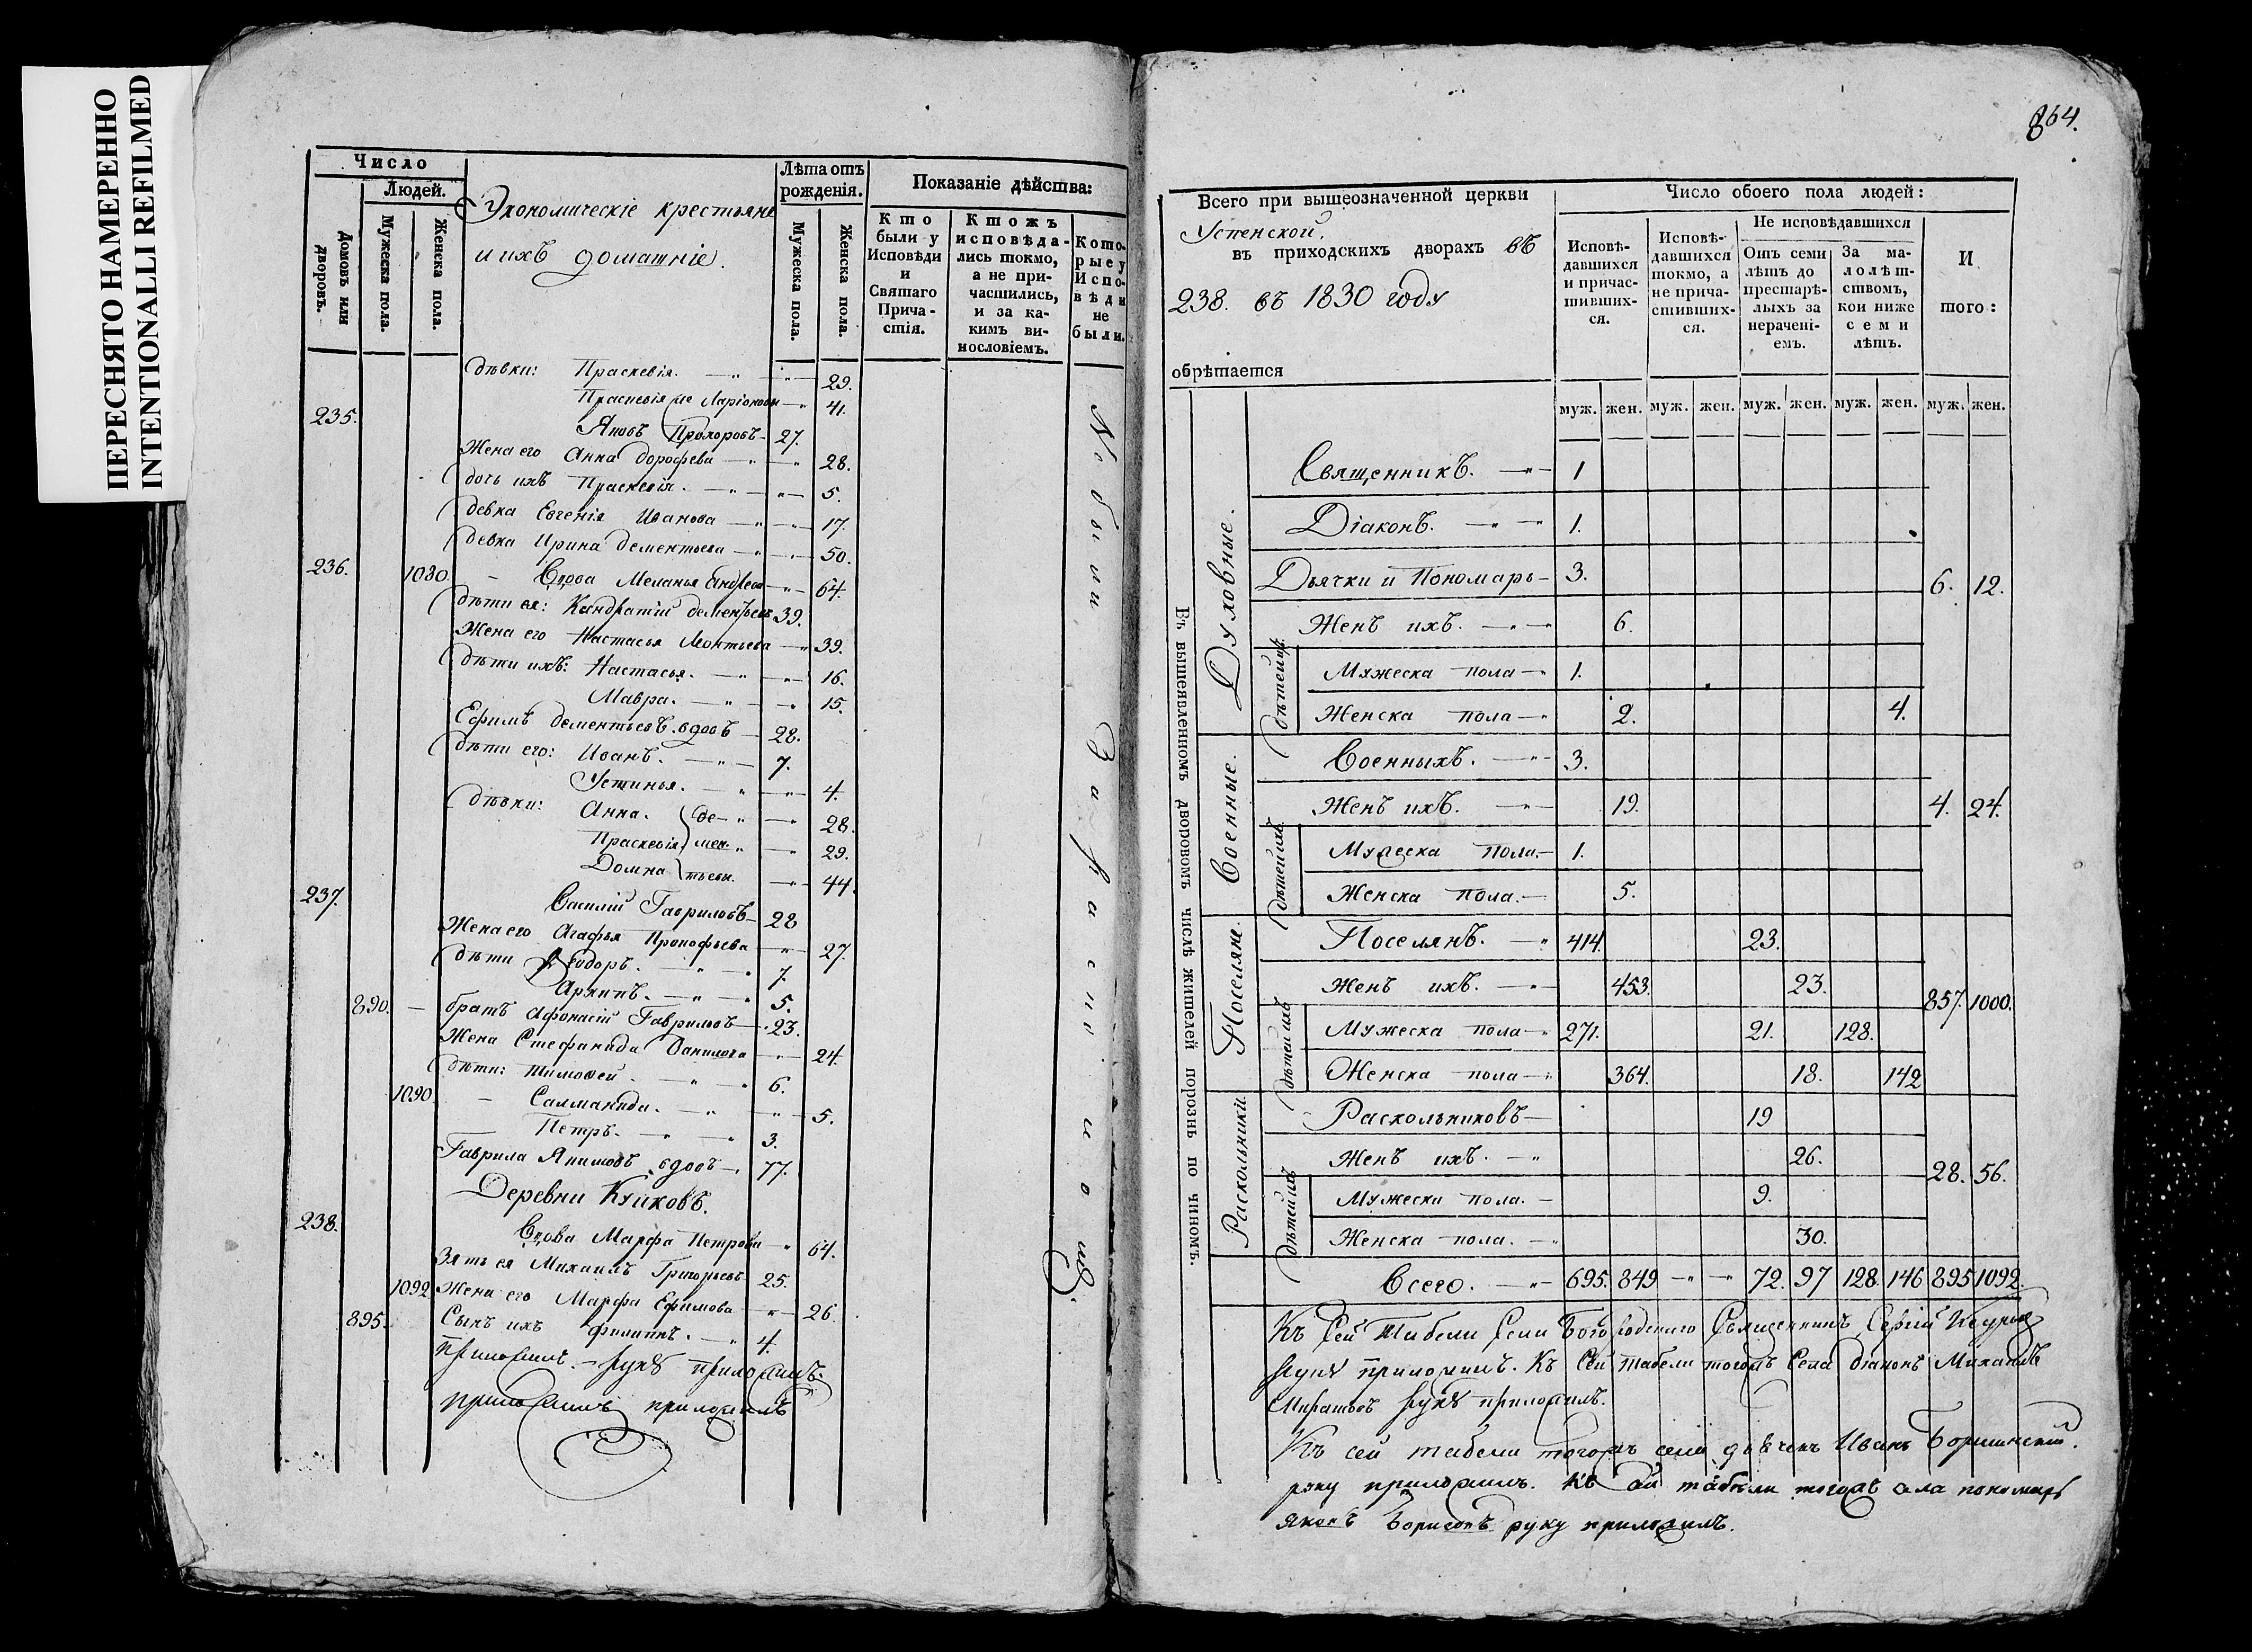 ПЕРЕСНЯТО НАМЕРЕННО
INTENTIONALLI REFILMED
Число
Людей.
Домовъ или дворовъ.
Мужеска пола.
Женска пола.
Экономическіе крестьяне
и ихъ домашніе.
Лѣта отъ рожденія.
Мужеска пола.
Женска пола.
Показаніе дѣйства:
Кто были у Исповѣди и Святаго Причастія.
Ктожъ исповѣдались токмо, а не причастились, и за какимъ винословіемъ.
Которые у Исповѣди не были.
дѣвки: Праскевія. 29.
Праскевія Ларіонов 41.
235. Яковъ Прохоровъ 27.
Жена его Анна Дорофева 28.
дочь ихъ Праскевія. 5.
девка Евгенія Иванова 17.
девка Ирина Дементьева 50.
236. 1080. Вдова Меланья Андреев 64.
дѣти ея: Кондратій Дементьевъ 39.
Жена его Настасья Леонтьева 39.
дѣти ихъ: Настасья. 16.
Мавра. 15.
Ефимъ Дементьевъ вдовъ 28.
дѣти его: Иванъ. 7.
Устинья. 4.
дѣвки: Анна. де- 28.
Праскевія мен- 29.
Домна тьевы. 44.
237. Василій Гавриловъ 28
Жена его Агафья Прокофьева 27.
дѣти Ѳеодоръ. 7
Архипъ. 5.
890. братъ Афонасій Гавриловъ 23.
Жена Стефанида Данилова 24.
дѣти: Тимофей. 6.
1090 Саламанида. 5.
Петръ. 3.
Гаврила Якимовъ вдовъ 77.
Деревни Куиковъ.
238. Вдова Марфа Петрова 64.
Зять ея Михаилъ Григорьевъ 25.
1092 Жена его Марфа Ефимова 26.
895. Сынъ ихъ Филиппъ. 4.
Не были За
приложилъ. руку приложилъ.
приложилъ приложилъ
864.
Всего при вышеозначенной церкви
Успенской.
въ приходскихъ дворахъ въ
238. въ 1830 году
обрѣтается
Число обоего пола людей:
Исповѣдавшихся и причастившихся.
Исповѣдавшихся токмо, а не причастившихся.
Не исповѣдавшихся
Отъ семи лѣтъ до престарѣлыхъ за нераченіемъ.
За малолѣтствомъ, кои ниже семи лѣтъ.
И того:
муж. жен. муж. жен. муж. жен. муж. жен. муж. жен.
вышеявленномъ дворовомъ числѣ жителей порознь по чиномъ.
Духовные.
Священникъ. 1
Діаконъ. 1.
Дьячки и Пономарь 3.
6. 12.
Женъ ихъ. 6.
дѣтей ихъ
Мужеска пола 1.
Женска пола 2. 4.
Военные.
Военныхъ. 3.
Женъ ихъ. 19. 4. 24.
дѣтей ихъ
Мужеска пола. 1.
Женска пола. 5.
Поселяне.
Поселянъ. 414. 23.
Женъ ихъ. 453. 23.
857. 1000.
дѣтей ихъ
Мужеска пола 271. 21. 128.
Женска пола 364. 18. 142
Раскольники.
Раскольниковъ 19
Женъ ихъ. 26.
28. 56.
дѣтей ихъ
Мужеска пола. 9.
Женска пола. 30.
Всего. 695. 849 72. 97 128. 146 895 1092.
Къ Сей Табели Села Богородскаго Священникъ Сергій
руку приложилъ. Къ Сей табели тогожъ Села діаконъ Михаилъ
руку приложилъ.
Къ сей табели тогожъ села дьячекъ Иванъ
руку приложилъ. Къ сей табели тогожъ села пономарь
Яковъ Борисовъ руку приложилъ.